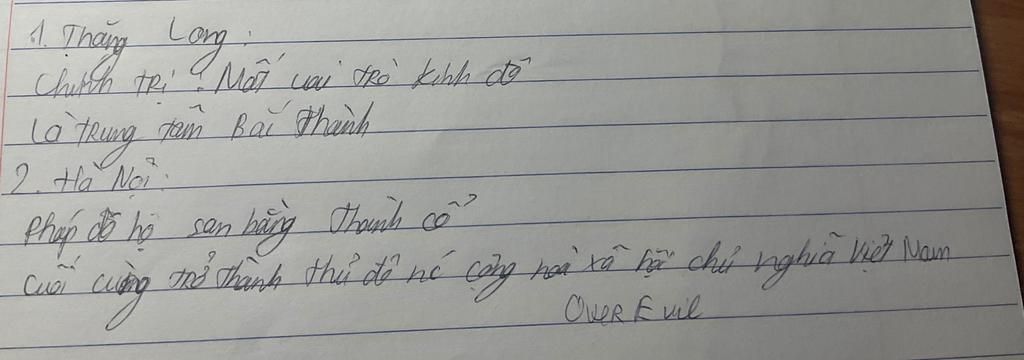 1. Thăng Long:
Chính trị: Mất vai trò kinh đô
Là trung tâm Bắc thành
2. Hà Nội:
Pháp đô hộ san bằng thành cổ
Cuối cùng trở thành thủ đô nc cộng hoà xã hội chủ nghĩa Việt Nam
Over Evil